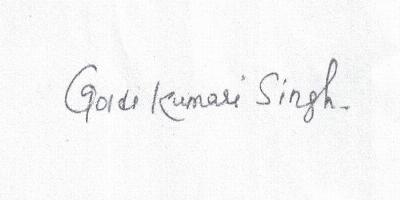 Goldi Kumari Singh.